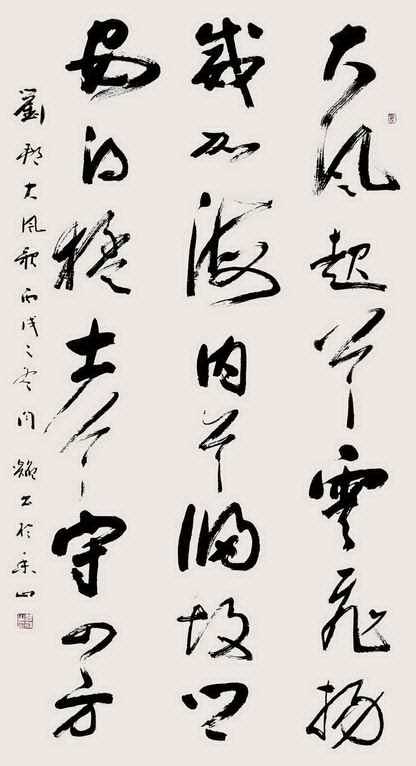 大風起兮雲飛揚
威加海内兮歸故鄉
安得猛士兮守四方
劉邦大風歌丙戌之冬書於香山